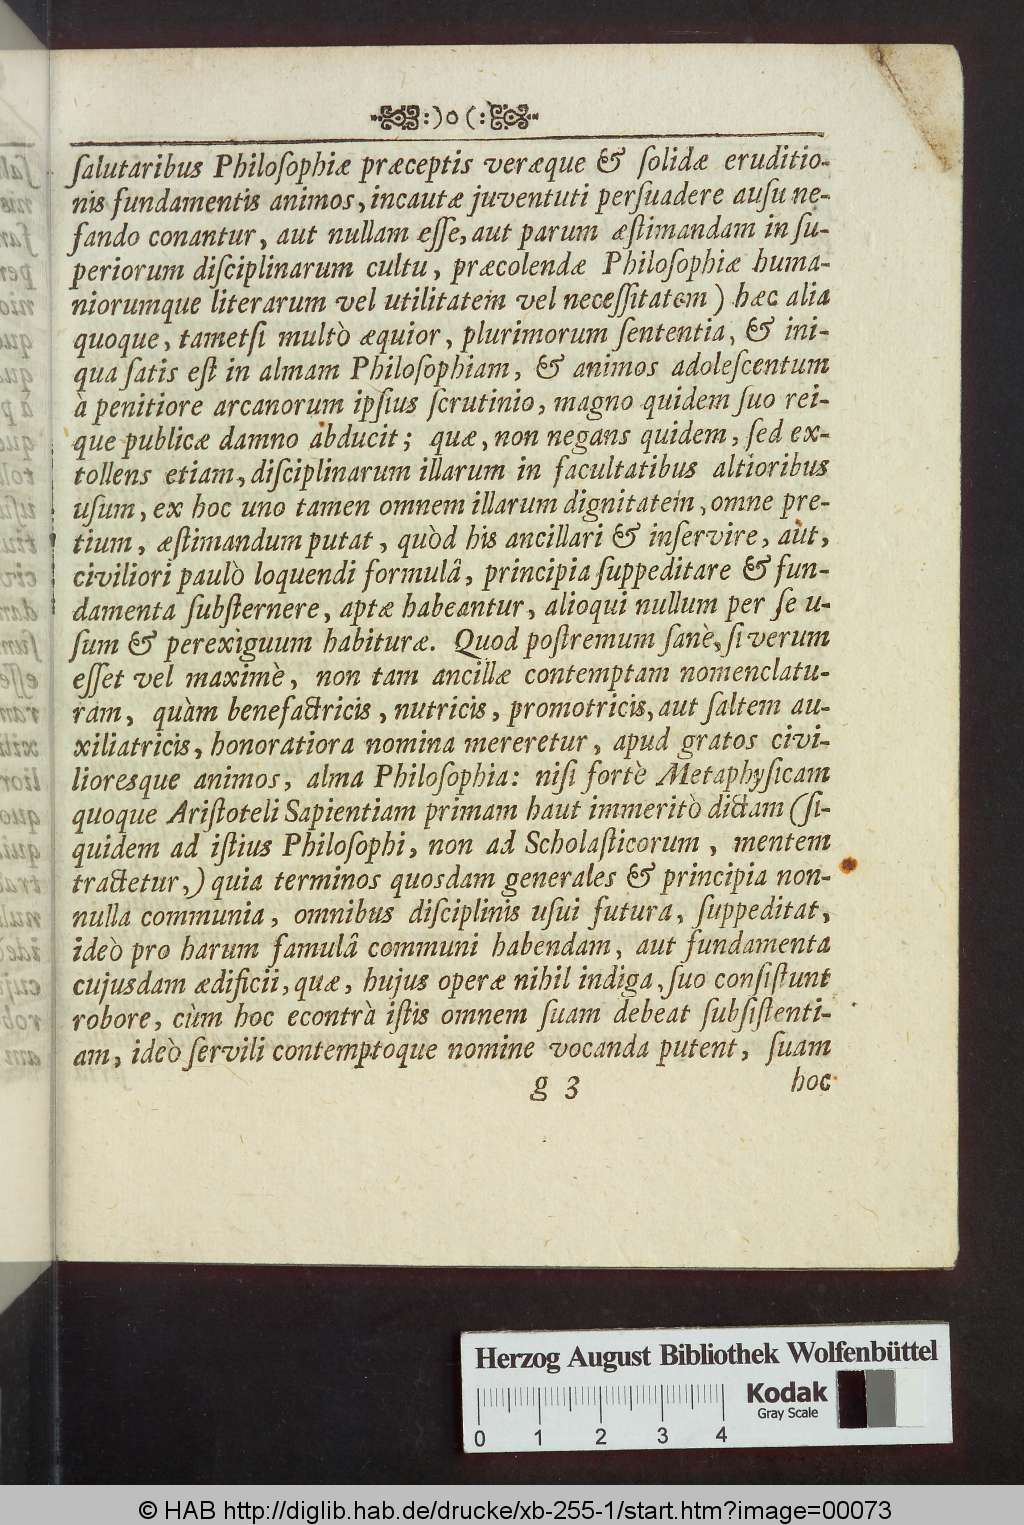 :) o (:
ſalutaribus Philoſophiæ præceptis veræque & ſolidæ eruditio-
nis fundamentis animos, incautæ juventuti perſuadere auſu ne-
fando conantur, aut nullam eſſe, aut parum æſtimandam in ſu-
periorum diſciplinarum cultu, præcolendæ Philoſophiæ huma-
niorumque literarum vel utilitatem vel neceſſitatem) hæc alia
quoque, tametſi multò æquior, plurimorum ſententia, & ini-
qua ſatis eſt in almam Philoſophiam, & animos adoleſcentum
à penitiore arcanorum ipſius ſcrutinio, magno quidem ſuo rei-
que publicæ damno abducit; quæ, non negans quidem, ſed ex-
tollens etiam, diſciplinarum illarum in facultatibus altioribus
uſum, ex hoc uno tamen omnem illarum dignitatem, omne pre-
tium, æſtimandum putat, quòd his ancillari & inſervire, aut,
civiliori paulò loquendi formulâ, principia ſuppeditare & fun-
damenta ſubſternere, aptæ habeantur, alioqui nullum per ſe u-
ſum & perexiguum habituræ. Quod poſtremum ſanè, ſi verum
eſſet vel maximè, non tam ancillæ contemptam nomenclatu-
ram, quàm benefactricis, nutricis, promotricis, aut ſaltem au-
xiliatricis, honoratiora nomina mereretur, apud gratos civi-
lioresque animos, alma Philoſophia: niſi fortè Metaphyſicam
quoque Ariſtoteli Sapientiam primam haut immeritò dictam (ſi-
quidem ad iſtius Philoſophi, non ad Scholaſticorum, mentem
tractetur,) quia terminos quosdam generales & principia non-
nulla communia, omnibus diſciplinis uſui futura, ſuppeditat,
ideò pro harum famulâ communi habendam, aut fundamenta
cujusdam ædificii, quæ, hujus operæ nihil indiga, ſuo conſiſtunt
robore, cùm hoc econtrà iſtis omnem ſuam debeat ſubſiſtenti-
am, ideò ſervili contemptoque nomine vocanda putent, ſuam
g 3 hoc
Herzog August Bibliothek Wolfenbüttel
Kodak
Gray Scale
0 1 2 3 4
© HAB http://diglib.hab.de/drucke/xb-255-1/start.htm?image=00073